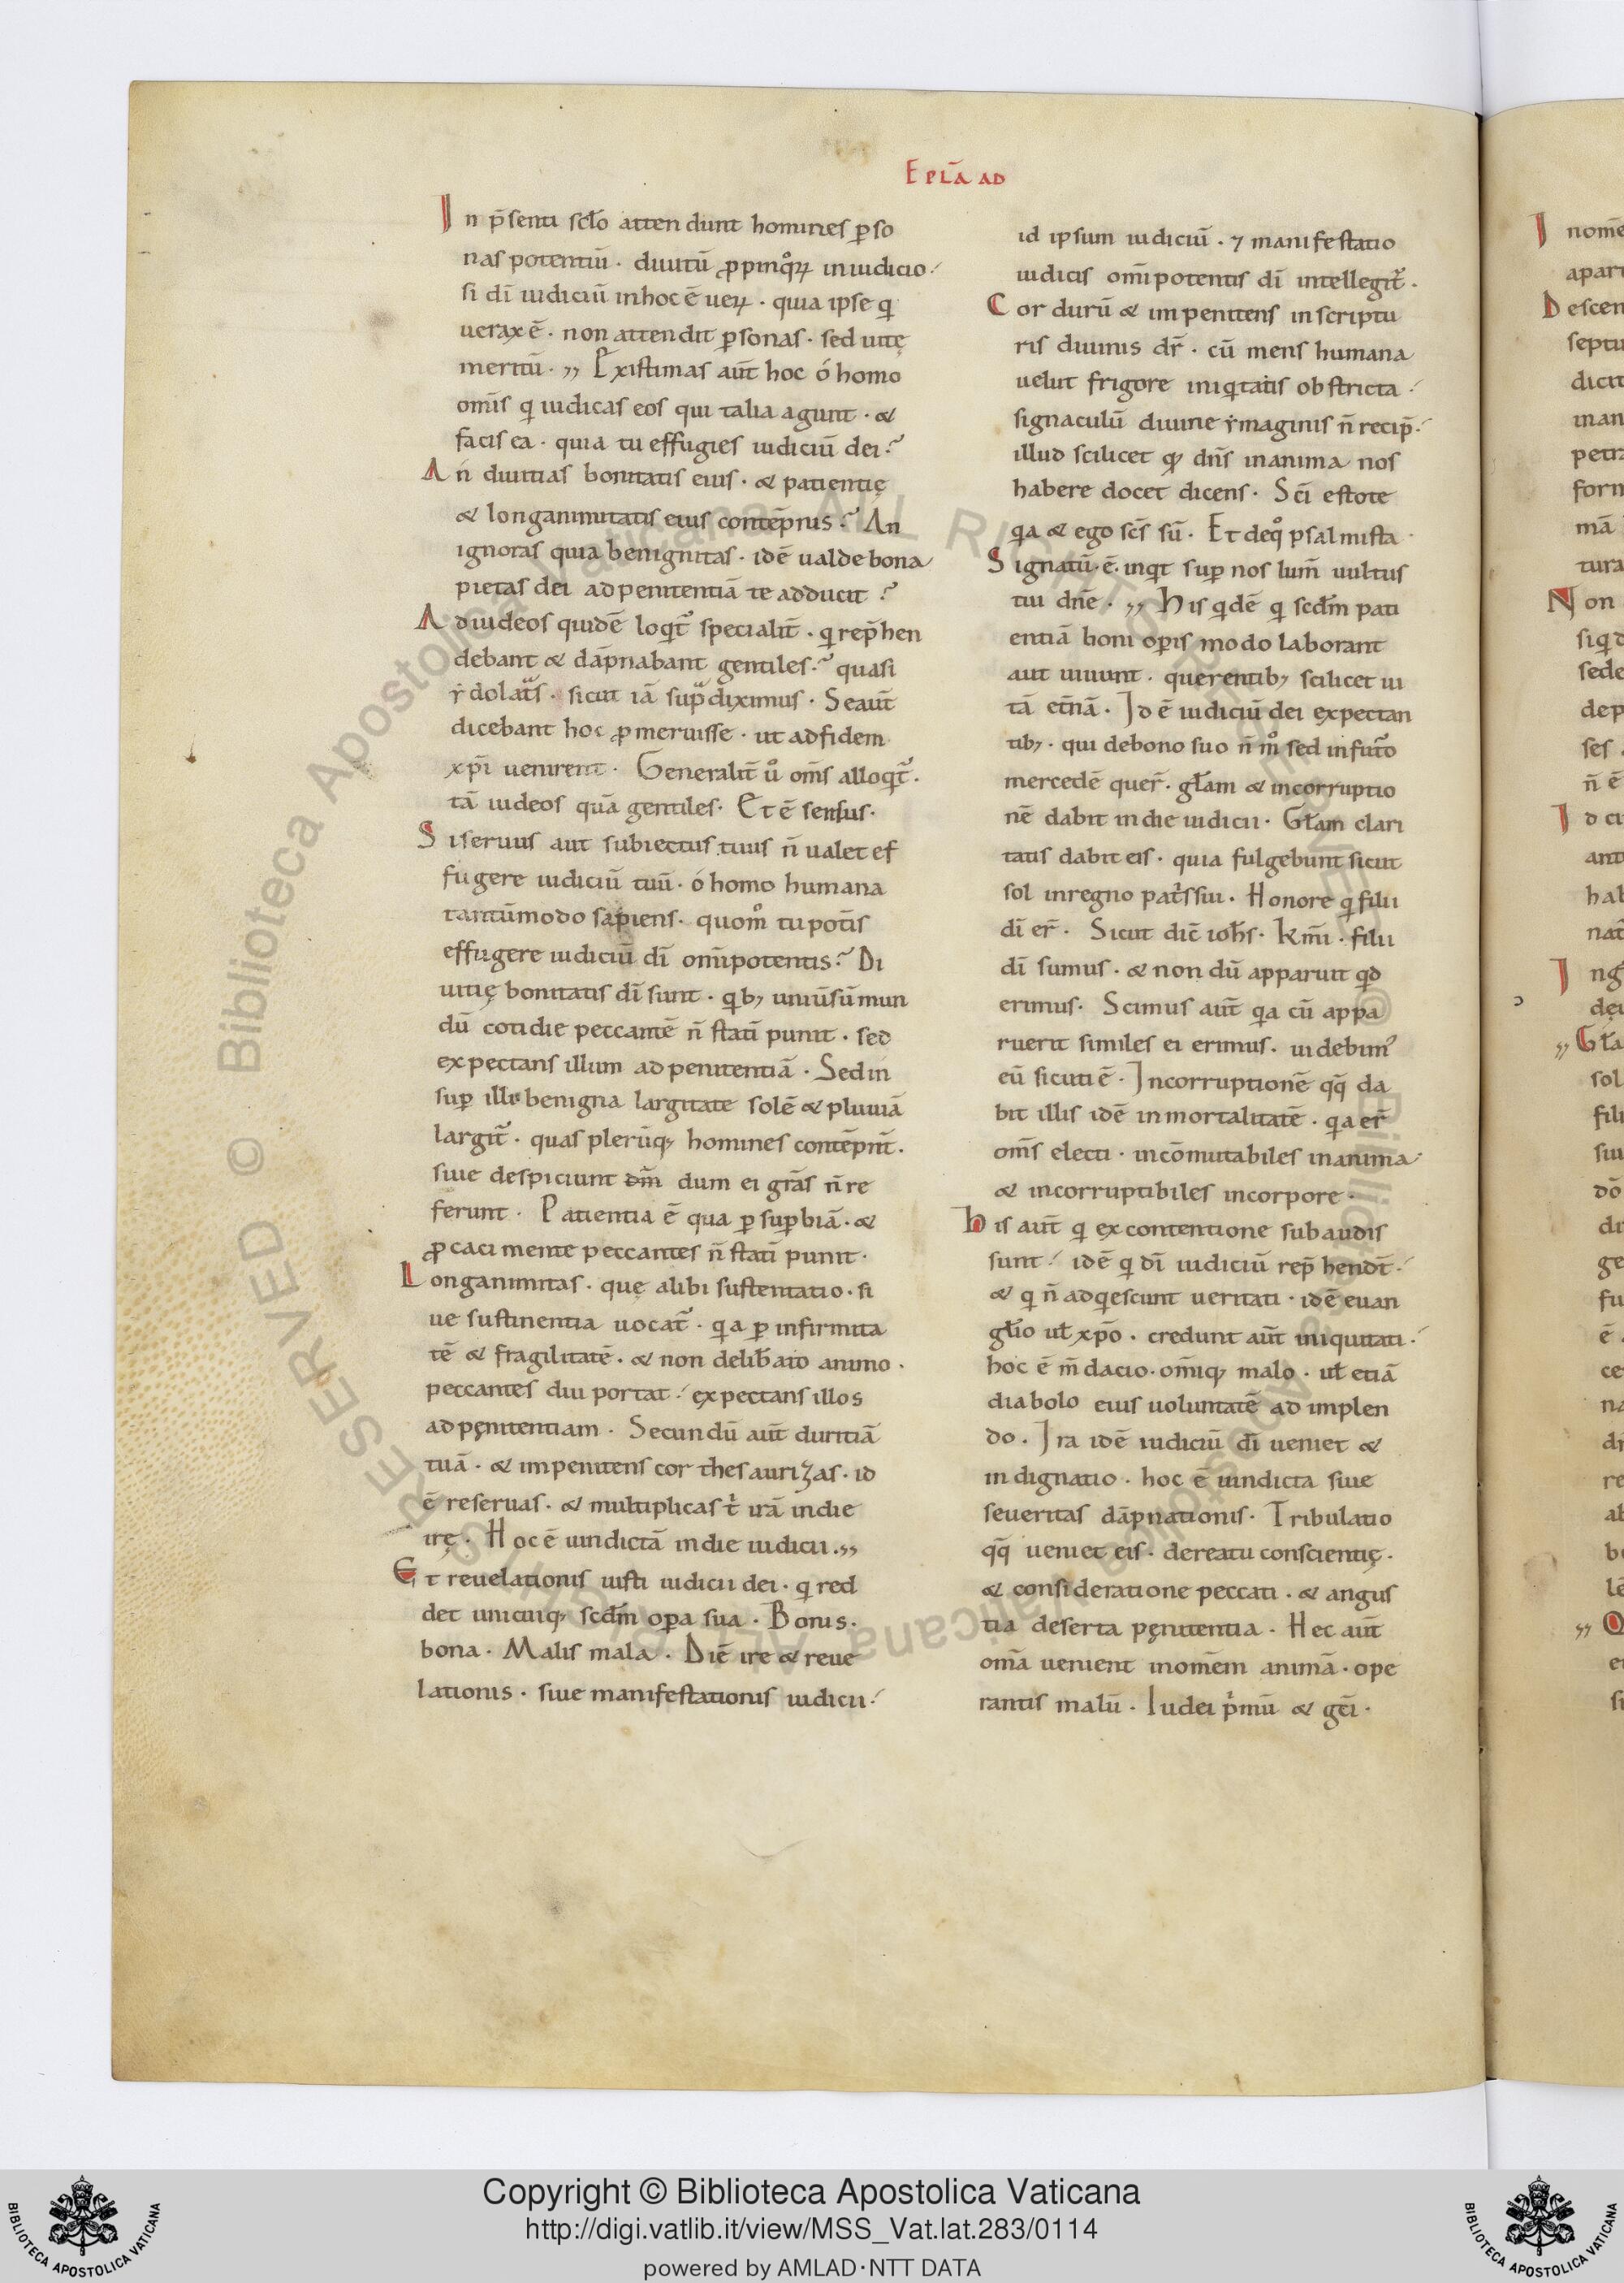 EPLA̅ AD
In p̄senti scl̄o attendunt homines ꝑso
nas potentiū · diuitū ꝓpinqͦꝝ iniudicio ·
si dī iudiciū inhoc ē ueꝝ · quia ipse q
uerax ē · non attendit ꝑsonas · sed uitę
meritū · ,, Existimas aūt hoc ó homo
om̄is q iudicas eos qui talia agunt · &
facis ea · quia tu effugies iudiciū dei ?
An diuitias bonitatis eius · & patientię
& longanimitatis eius contēpnis ? An
ignoras quia benignitas · idē ualde bona
pietas dei ad penitentiā te adducit ?
Ad iudeos quidē loqt̄ specialit̄ · q rep̄hen
debant & dāpnabant gentiles · quasi
ẏdolat̄s · sicut iā sup̄diximus · Se aūt
dicebant hoc ꝓmeruisse · ut ad fidem
xp̄i uenirent · Generalit̄ uͦ om̄s alloqt̄ ·
tā iudeos quā gentiles · Et ē sensus ·
Si seruus aut subiectus tuus n̄ ualet ef
fugere iudiciū tuū · ó homo humana
tantūmodo sapiens · quomͦ tu pot̄is
effugere iudiciū dī om̄ipotentis ? Di
uitię bonitatis dī sunt · qbꝫ uniūsū mun
dū cotidie peccantē n̄ statī punit · sed
expectans illum ad penitentiā · Sed in
suꝑ illis benigna largitate solē & pluuiā
largit̄ · quas plerūqꝫ homines contēpn̄t ·
siue despiciunt dm̄ dum ei grās n̄ re
ferunt · Patientia ē qua ꝑ suꝑbiā · &
ꝓcaci mente peccantes n̄ statī punit ·
Longanimitas · quę alibi sustentatio · si
ue sustinentia uocat̄ · qa ꝑ infirmita
tē & fragilitatē · & non delib̄ato animo ·
peccantes diu portat · expectans illos
ad pęnitentiam · Secundū aūt duritiā
tuā · & impenitens cor thesaurizas · id
ē reseruas · & multiplicas t̄ irā indie
irę · Hoc ē uindictā in die iudicii ·,,
Et reuelationis iusti iudicii dei · q red
det unicuiqꝫ scdm̄ oꝑa sua · Bonis ·
bona · Malis mala · Diē ire & reue
lationis · siue manifestationis iudicii ·
id ipsum iudiciū · ⁊ manifestatio
iudicis om̄ipotentis dī intellegit̄ ·
Cor durū & impenitens in scriptu
ris diuinis dr̄ · cū mens humana
uelut frigore iniqtatis obstricta ·
signaculū diuine ẏmaginis n̄ recip̄ ·
illud scilicet qd dn̄s in anima nos
habere docet dicens · Sc̄i estote
qa & ego sc̄s sū · Et de qͦ psalmista ·
Signatū · ē · inqt suꝑ nos lum̄ uultus
tui dn̄e · ,, His qdē q scdm̄ pati
entiā boni oꝑis modo laborant
aut uiuunt · querentibꝫ scilicet ui
tā et̄nā · Id ē iudiciū dei expectan
tibꝫ · qui de bono suo n̄ mͦ sed in futo
mercedē quer̄ · gl̄am & incorruptio
nē dabit in die iudicii · Gl̄am clari
tatis dabit eis · quia fulgebunt sicut
sol in regno pat̄s sui · Honore q filii
dī er̄ · Sicut dic̄ ioh̄s · Km̄i · filii
dī sumus · & non dū apparuit qd
erimus · Scimus aūt qa cū appa
ruerit similes ei erimus · uidebimꝰ
eū sicuti ē · Incorruptionē qq̄ da
bit illis idē inmortalitatē · qa er̄
om̄s electi · incōmutabiles in anima ·
& incorruptibiles in corpore ·
His aūt q ex contentione subaudis
sunt · idē q dī iudiciū rep̄hendt̄ ·
& q n̄ adqescunt ueritati · idē euan
gl̄io ul̄ xp̄o · credunt aūt iniquitati ·
hoc ē m̄dacio · om̄iqꝫ malo · ul̄ etiā
diabolo eius uoluntatē ad implen
do · Ira idē iudiciū dī ueniet &
indignatio · hoc ē uindicta siue
seueritas dāpnationis · Tribulatio
qq̄ ueniet eis · de reatu conscientię ·
& consideratione peccati · & angus
tia deserta pęnitentia · Hec aūt
om̄a uenient in om̄em animā · ope
rantis malū · Iudei p̄mū & gc̄i ·
Copyright © Biblioteca Apostolica Vaticana
http://digi.vatlib.it/view/MSS_Vat.lat.283/0114
powered by AMLAD·NTT DATA
BIBLIOTECA APOSTOLICA VATICANA
BIBLIOTECA APOSTOLICA VATICANA